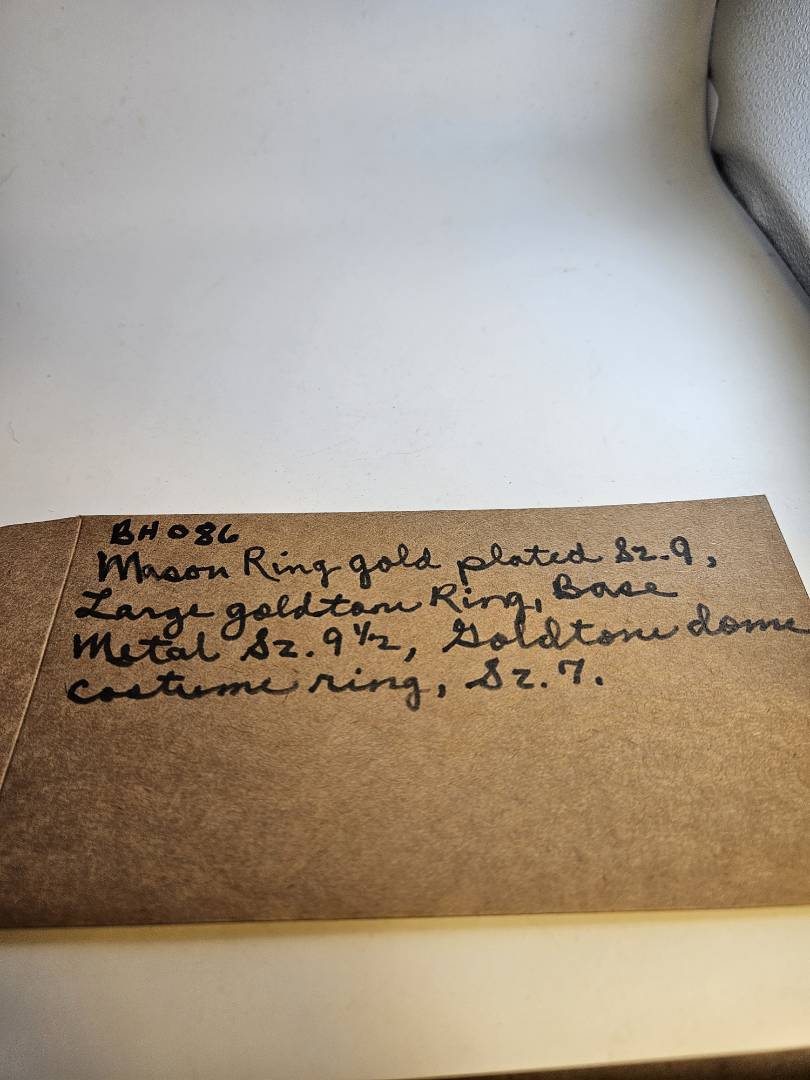 BH086
Mason Ring gold plated Sz.9,
Large goldtone Ring, Base
Metal Sz. 9 1/2, Goldtone dome
costume ring, Sz. 7.